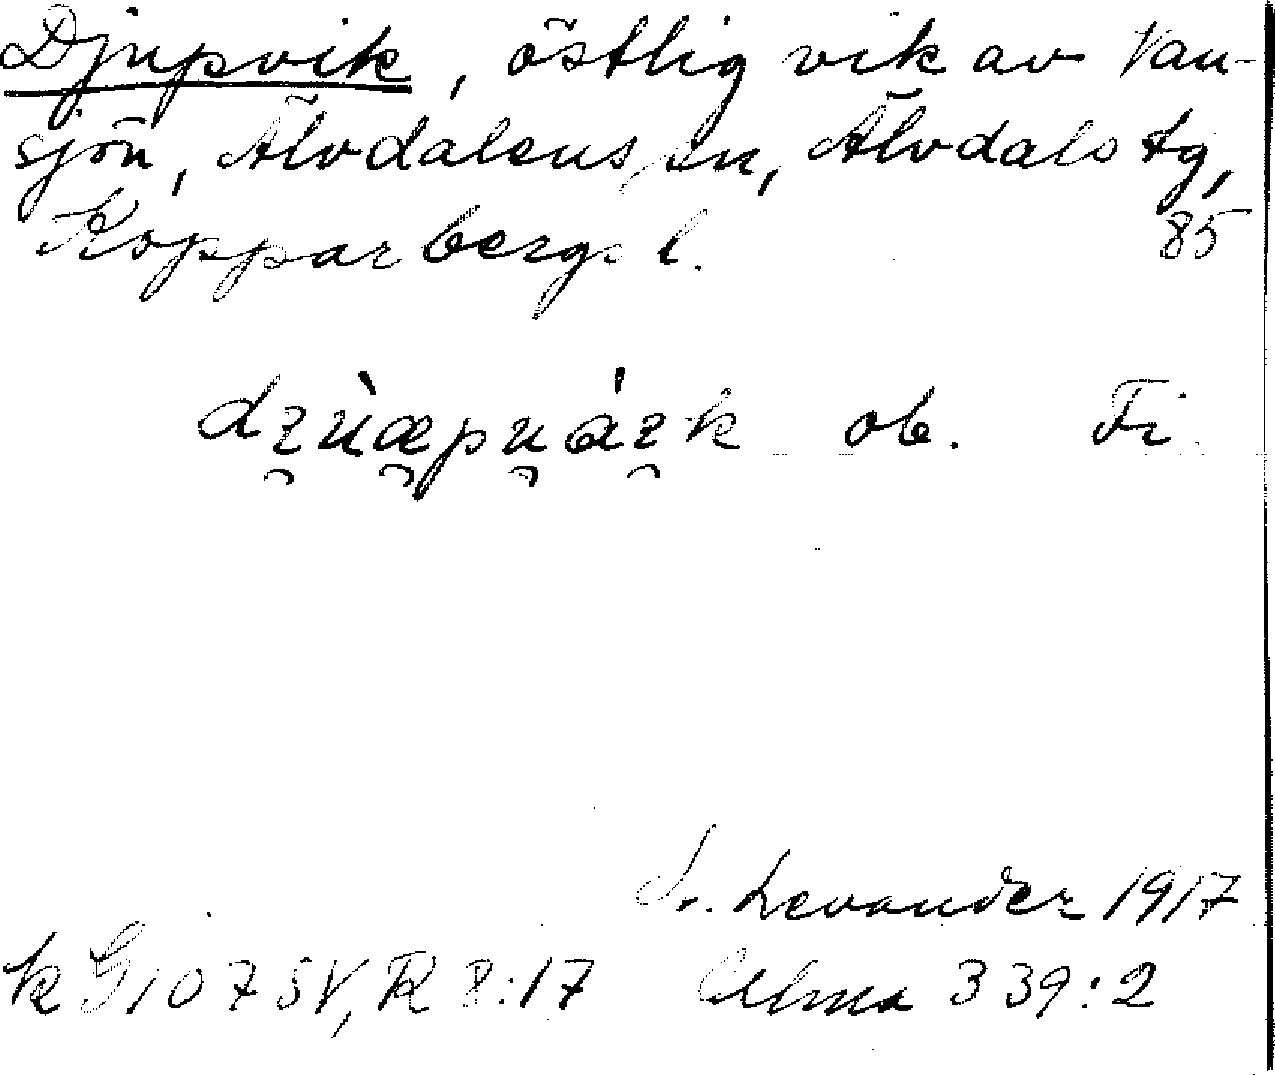 Djupvik, östlig vik av Van-
sjön, Älvdalens sn, Älvdals tg,
Kopparbergs l. 85
ob. Fi.
L. Levander 1917
k G 107 SV, R 8:17 Alma 339:2